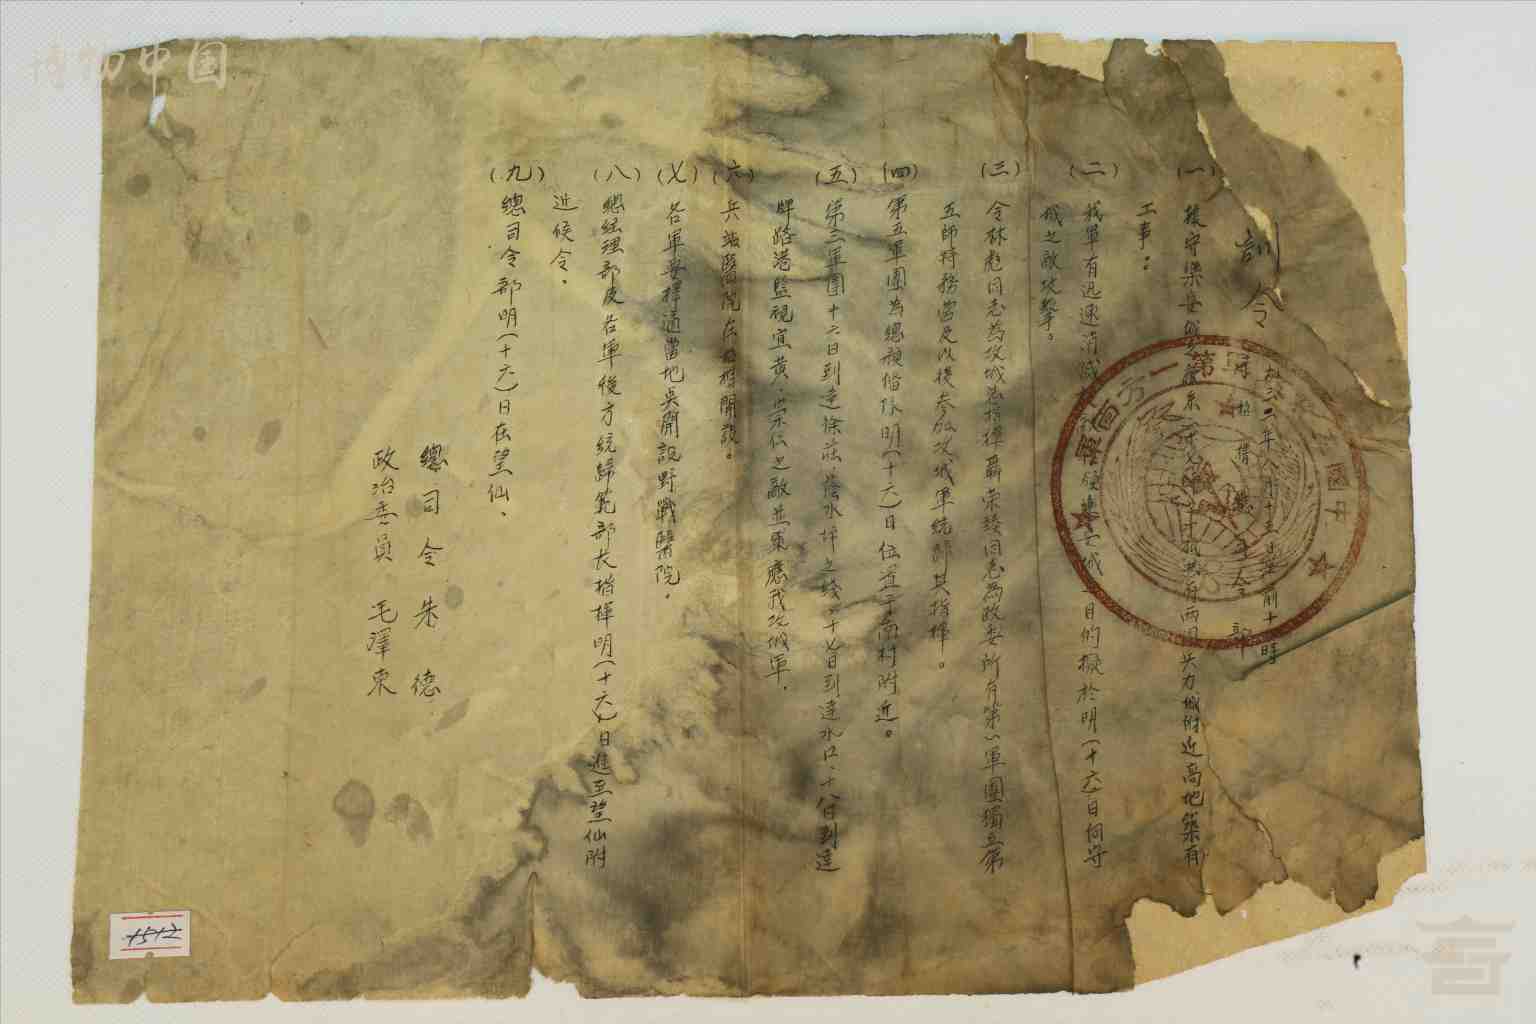 訓令
一九三二年八月十五日午前十時
於招攜總司令部
(一)據守樂安城之敵系二十七師之敵有兩團兵力城附近高地築有
工事：
(二)我軍有迅速消滅樂安城之目的擬於明(十六)日向守
城之敵攻擊。
(三)令林彪同志為攻城總指揮聶榮臻同志為政委所有第一軍團獨立第
五師特務營及以後參加攻城軍統歸其指揮。
(四)第五軍團為總預備隊明(十六)日位置于南村附近。
(五)第三軍團十六日到達徐莊蔭水坪之綫、十七日到達水口、十八日到達
牌路港監視宜黃、崇仁之敵並策應我攻城軍、
(六)兵站醫院在招攜開設。
(七)各軍要擇適當地點開設野戰醫院、
(八)總經理部及各軍後方統歸範部長指揮明(十六)日進至望仙附
近候令、
(九)總司令部明(十六)日在望仙、
總司令 朱德
政治委員 毛澤東
中國
第一方面軍
1512
博物中国